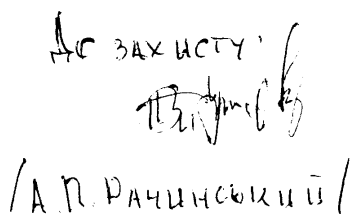 До захисту
/А.П. Рачинський/